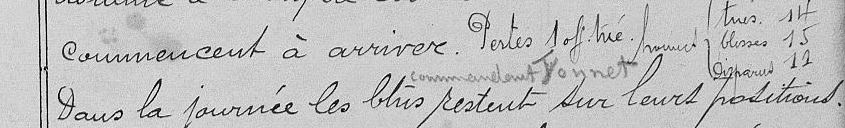 commencent à arriver. Pertes 1 off. tué. hommes { tués. 14
blessés 15
disparus 12
commandant Voynet
Dans la journée les btns restent sur leurs positions.